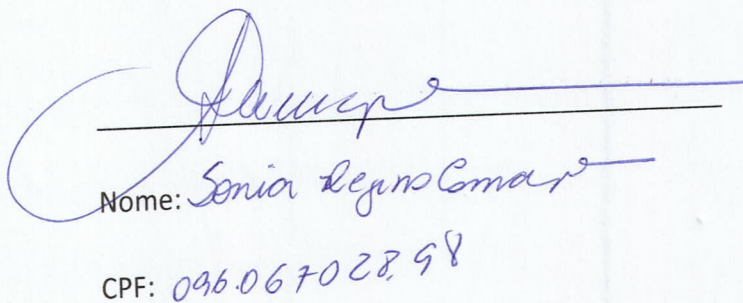 Nome: Sonia Regina Camargo
CPF: 096.067028.98